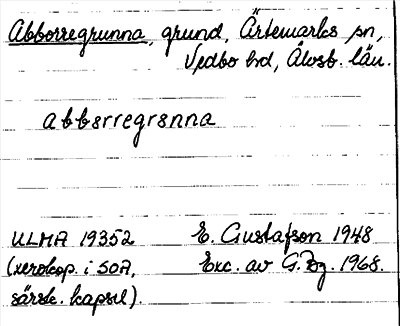 Abborregrunna, grund, Ärtemarks sn,
Vedbo hd, Älvsb. län.
abbɛrregrɛnna
ULMA 19352 E. Gustafson 1948
(xerokop. i SOA, Exc. av G. Bg. 1968.
särsk. kapsel).